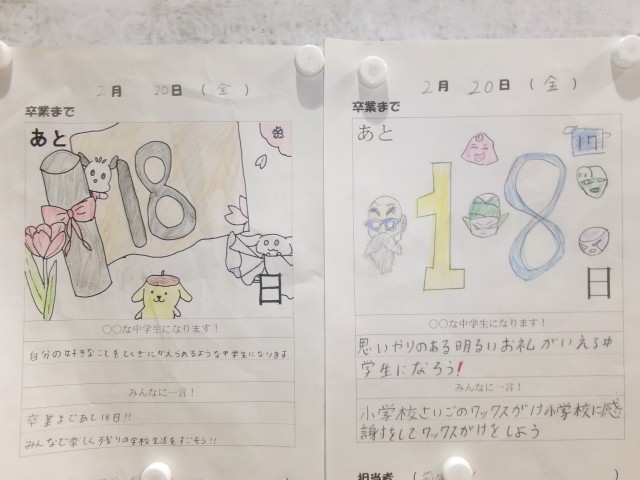 2月 20日 (金)
卒業まで
あと
18
日
〇〇な中学生になります!
自分の好きなことをとくぎにかえられるような中学生になります
みんなに一言!
卒業まであと18日!!
みんなで楽しく残りの学校生活をすごそう!!
2月 20日 (金)
卒業まで
あと
18
日
〇〇な中学生になります!
思いやりのある明るいお礼がいえる中
学生になろう!
みんなに一言!
小学校さいごのワックスがけ小学校に感
謝をしてワックスがけをしよう
担当者 (